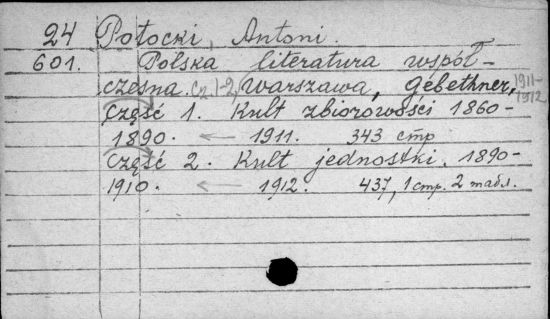 24 Potocki, Antoni.
601. Polska literatura współ-
czesna. Cz. 1-2, Warszawa, Gebethner, 1911-
1912
Część 1. Kult zbiorowości 1860-
1890. ← 1911. 343 стр
Część 2. Kult jednostki. 1890-
1910. ← 1912. 437, 1 стр. 2 табл.